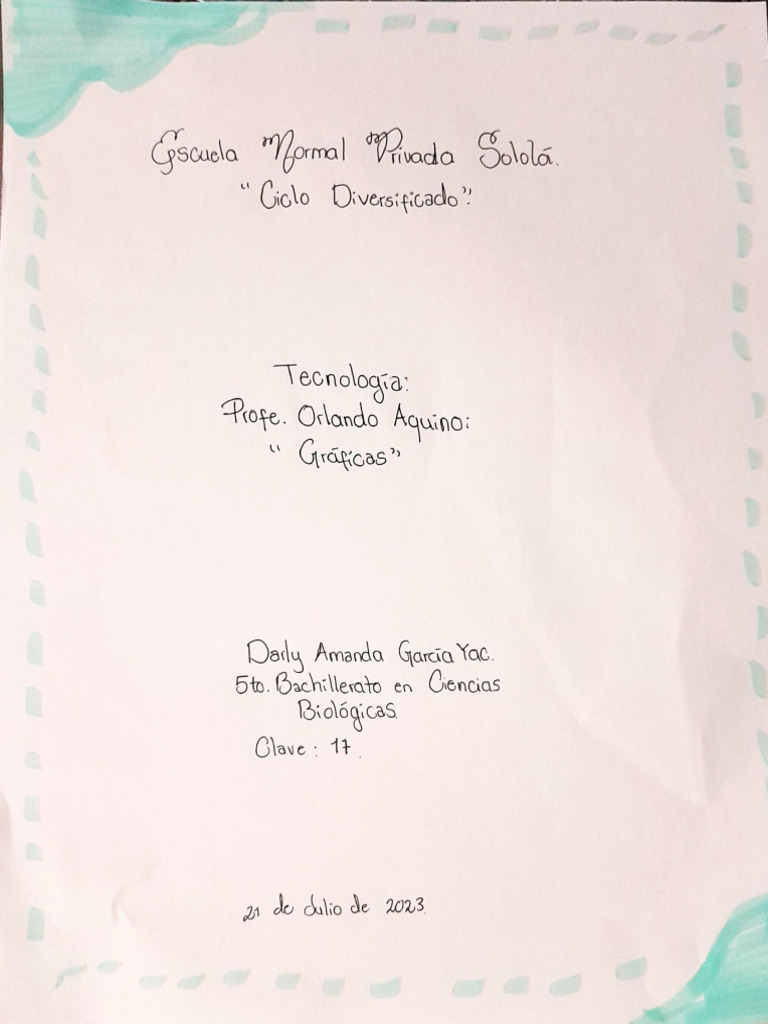 Escuela Normal Privada Sololá.
"Ciclo Diversificado".
Tecnología:
Profe. Orlando Aquino:
"Gráficas"
Darly Amanda García Yac.
5to. Bachillerato en Ciencias
Biológicas.
Clave: 17.
21 de Julio de 2023.